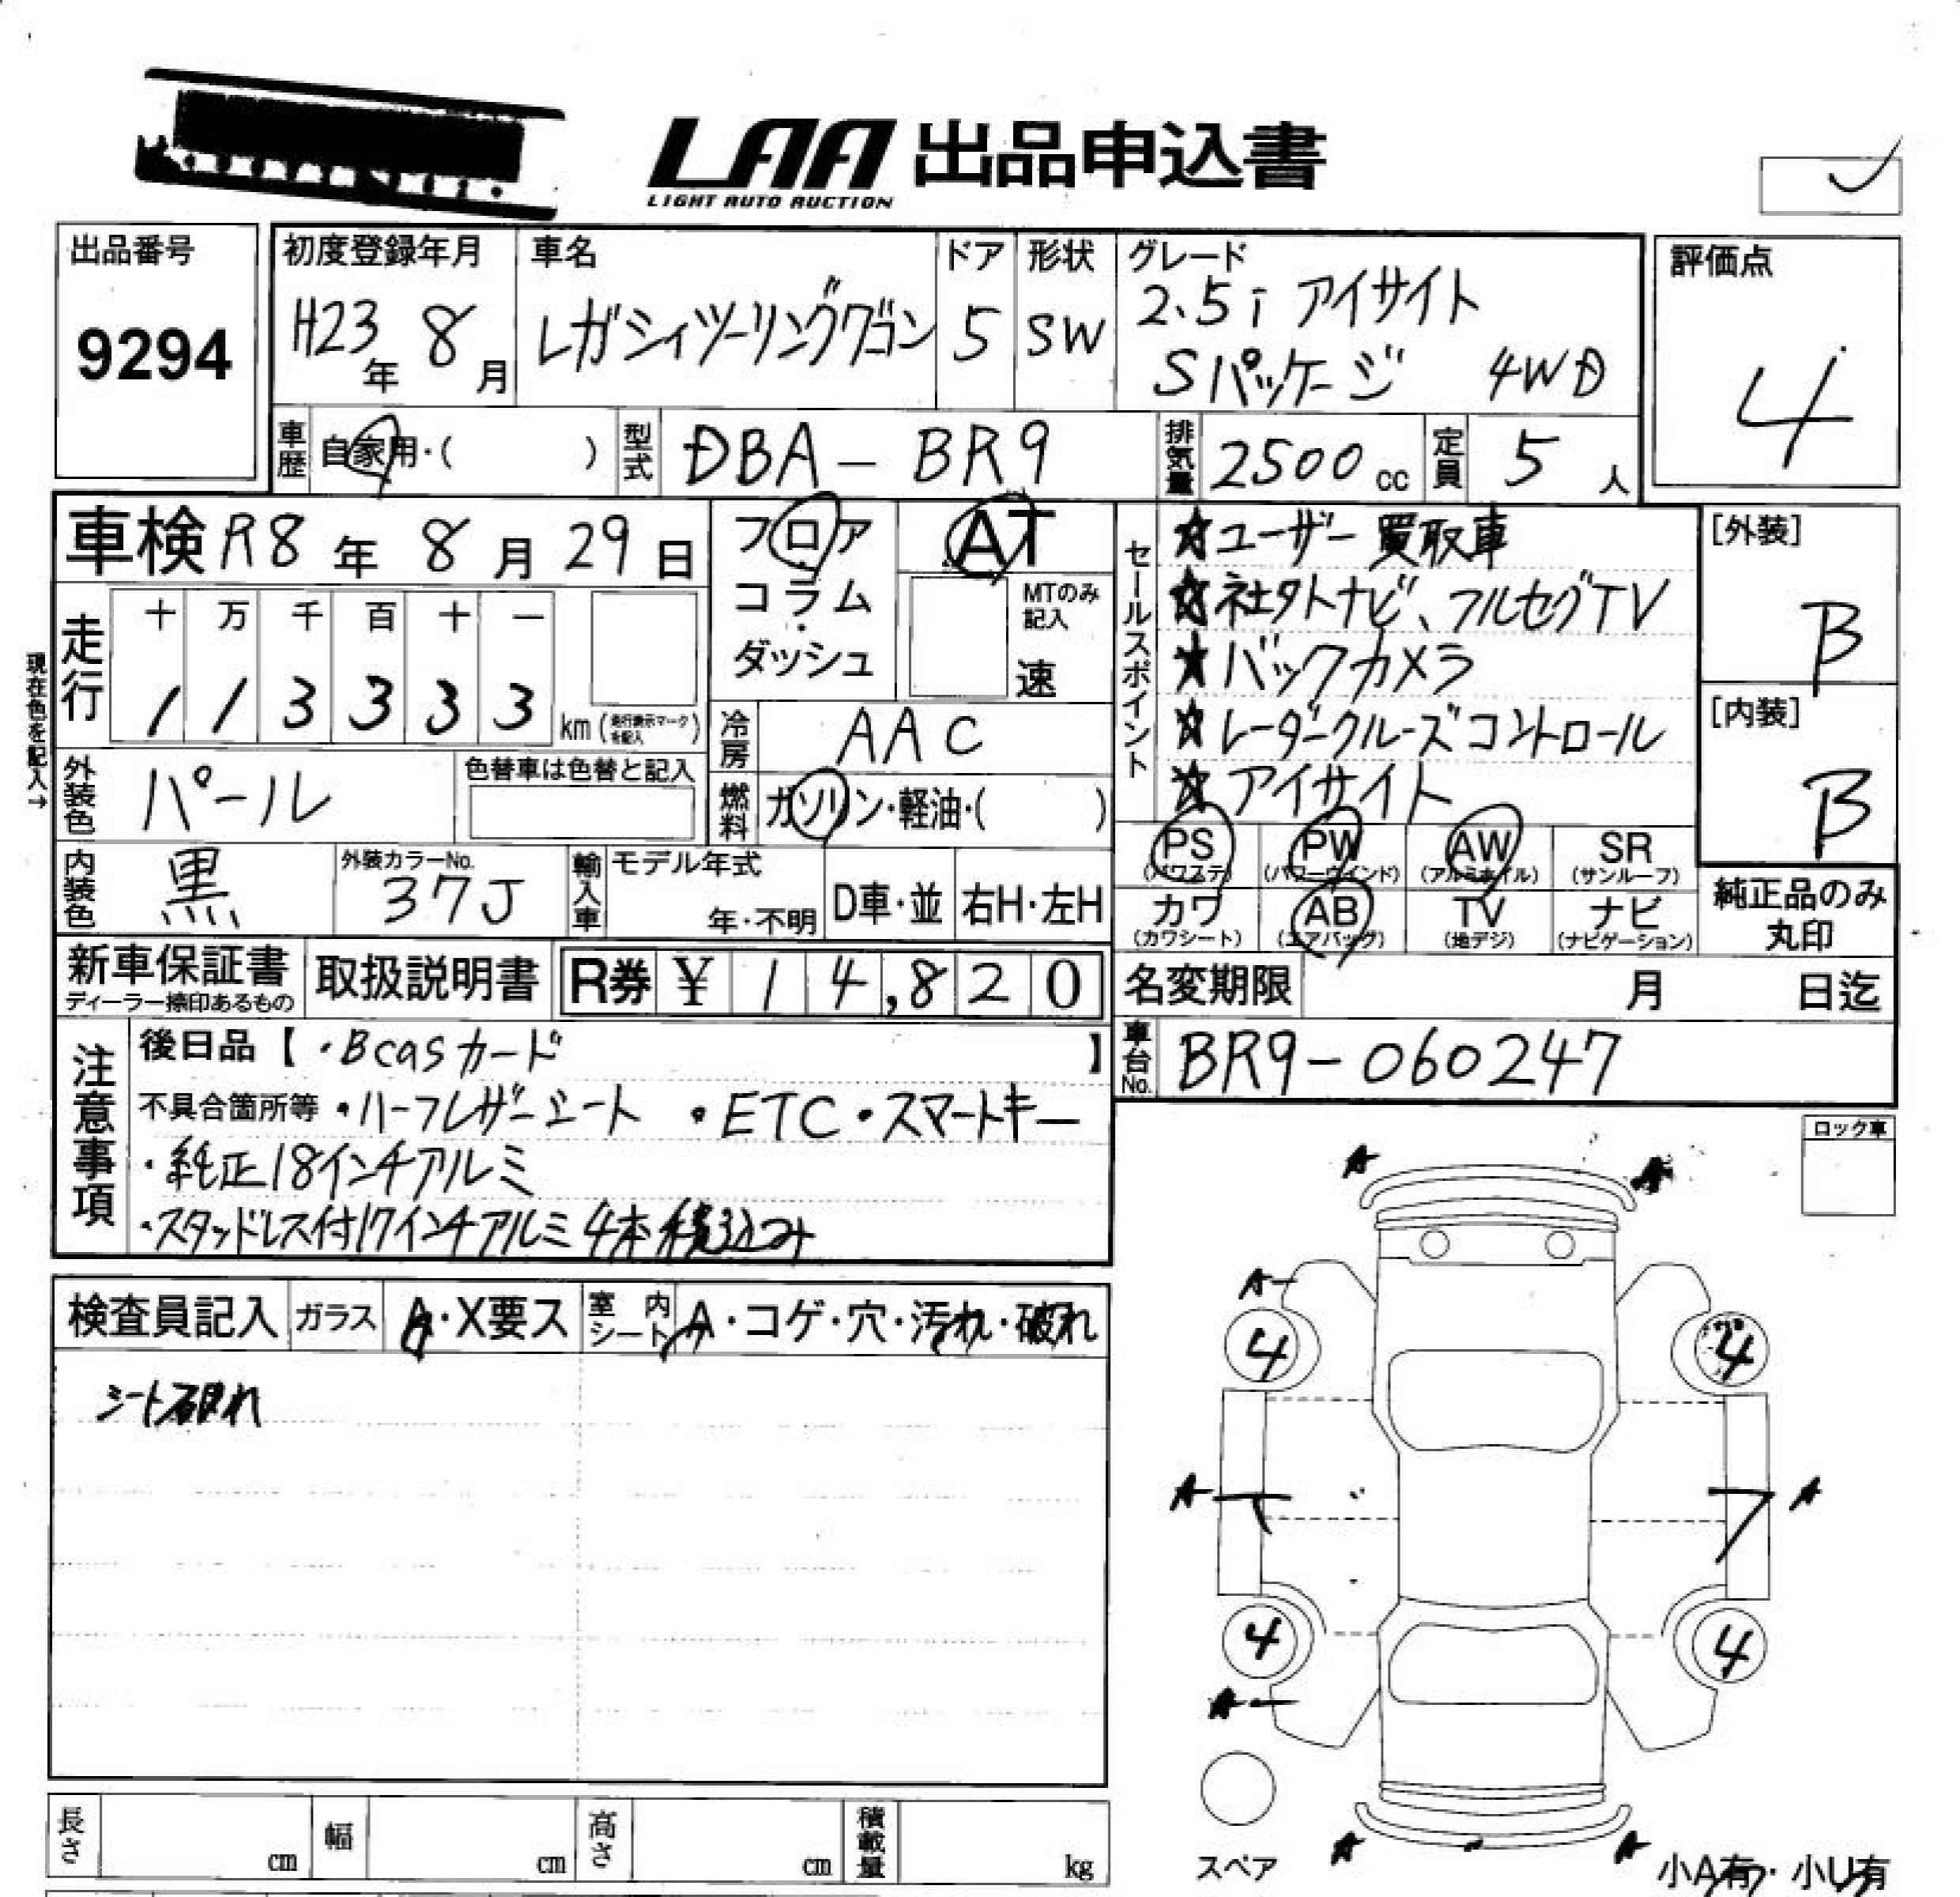 LAA 出品申込書
LIGHT AUTO AUCTION
出品番号
9294
初度登録年月
H23年 8月
車名
レガシィツーリングワゴン
ドア
5
形状
SW
グレード
2.5i アイサイト
Sパッケージ 4WD
評価点
4
車歴 自家用・( )
型式 DBA-BR9
排気量 2500cc
定員 5人
車検 R8年 8月 29日
フロア・コラム・ダッシュ
AT
MTのみ記入
速
走行
十 万 千 百 十 一
1 1 3 3 3 3 km (走行表示マークを記入)
現在色を記入→
冷房 AAC
外装色 パール
色替車は色替と記入
燃料 ガソリン・軽油・( )
内装色 黒
外装カラーNo.
37J
輸入車
モデル年式
年・不明
D車・並
右H・左H
セールスポイント
☆ユーザー買取車
☆社外ナビ、フルセグTV
★バックカメラ
☆レーダークルーズコントロール
☆アイサイト
[外装]
B
[内装]
B
PS (パワステ)
PW (パワーウインド)
AW (アルミホイル)
SR (サンルーフ)
カワ (カワシート)
AB (エアバッグ)
TV (地デジ)
ナビ (ナビゲーション)
純正品のみ
丸印
新車保証書
ディーラー捺印あるもの
取扱説明書
R券 ¥14,820
名変期限 月 日迄
車台No. BR9-060247
注意事項
後日品【・Bcasカード 】
不具合箇所等 ・ハーフレザーシート ・ETC・スマートキー
・純正18インチアルミ
・スタッドレス付17インチアルミ4本積込み
ロック車
検査員記入
ガラス
A・X要ス
室内シート
A・コゲ・穴・汚れ・破れ
シート破れ
A
A
A
4
4
A
A
4
4
A
A
A
スペア
小A有・小U有
長さ cm
幅 cm
高さ cm
積載量 kg